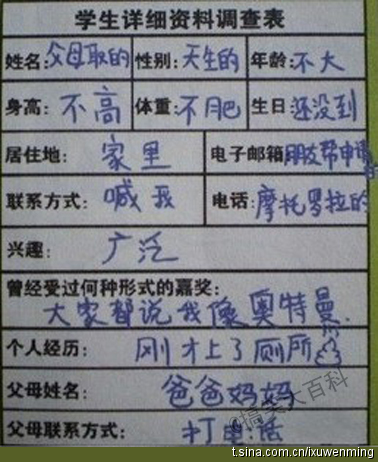 学生详细资料调查表
姓名:父母取的 性别:天生的 年龄:不大
身高:不高 体重:不肥 生日:还没到
居住地:家里 电子邮箱:朋友帮申请的
联系方式:喊我 电话:摩托罗拉的
兴趣:广泛
曾经受过何种形式的嘉奖:
大家都说我像奥特曼.
个人经历:刚才上了厕所
父母姓名:爸爸妈妈
@搞笑大百科
父母联系方式:打电话
t.sina.com.cn/ixuwenming